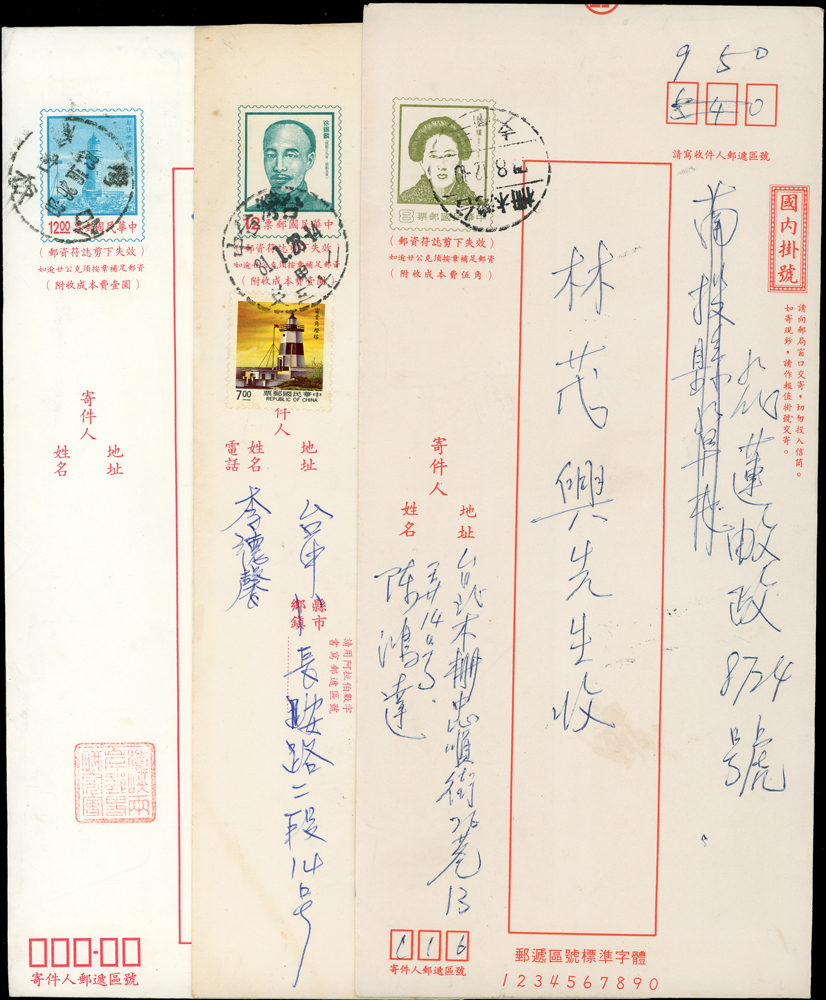 12.00 中華民國郵票
（郵資符誌剪下失效）
郵資如逾廿公克須按章補足郵資
（附收成本費壹圓）
寄件人
地址
姓名
寄件人郵遞區號
徐錫麟
12 中華民國郵票
（郵資符誌剪下失效）
如逾廿公克須按章補足郵資
（附收成本費壹圓）
7.00 中華民國郵票
REPUBLIC OF CHINA
件人
地址
姓名
電話
台中
縣市
鄉鎮
長安路二段14号
李德馨
請用阿拉伯數字
書寫郵遞區號
8 中華民國郵票
（郵資符誌剪下失效）
如逾廿公克須按章補足郵資
（附收成本費伍角）
950
540
請寫收件人郵遞區號
國內掛號
請向郵局窗口交寄，切勿投入信筒。
如寄現鈔，請作報值掛號交寄。
南投縣草屯
8724
號
林茂興先生收
寄件人
地址
姓名
台北木柵中崙順街26巷13
弄14号
陳鴻達
116
寄件人郵遞區號
郵遞區號標準字體
1234567890